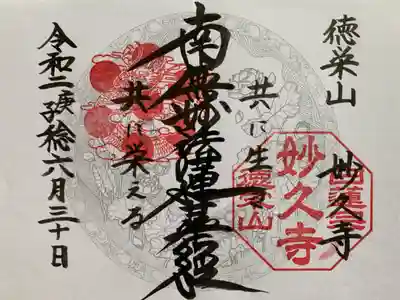 徳栄山
妙久寺
共に生
南無妙法蓮華経
共に栄える
令和二庚子稔六月三十日
妙久寺